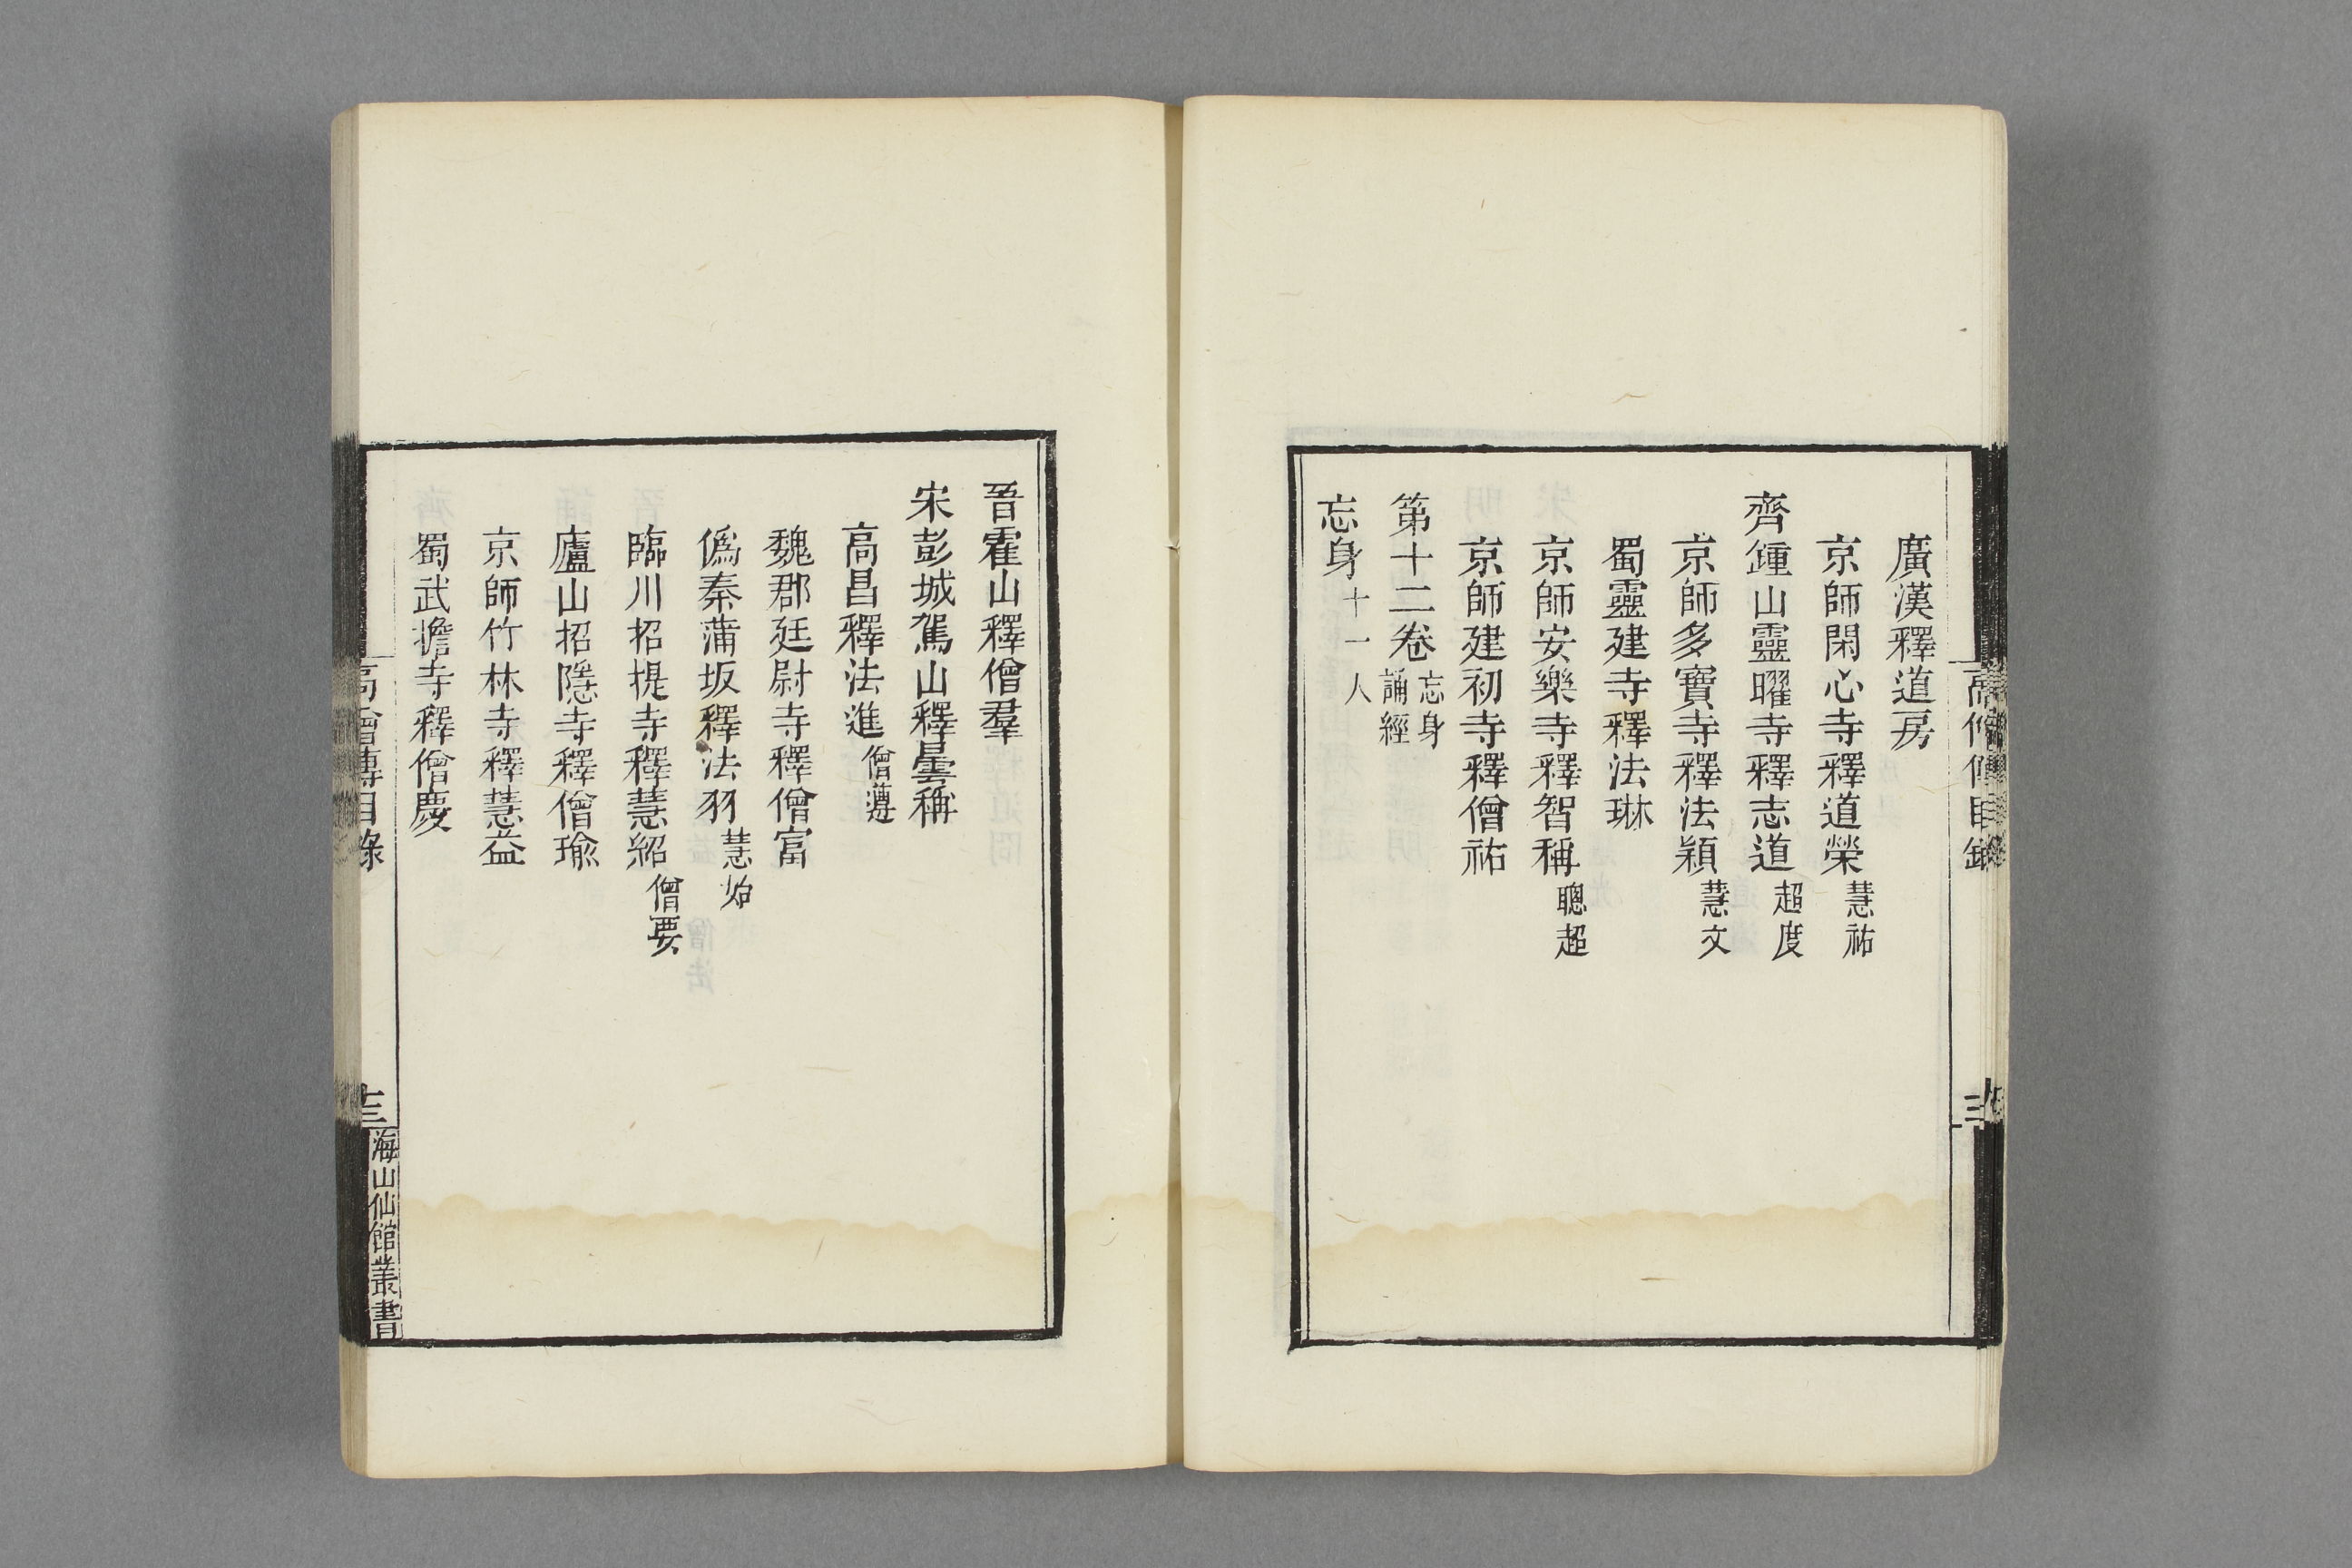 廣漢釋道房
京師閑心寺釋道榮慧祐
齊鍾山靈曜寺釋志道超度
京師多寶寺釋法穎慧文
蜀靈建寺釋法琳
京師安樂寺釋智稱聰超
京師建初寺釋僧祐
第十二卷忘身誦經
忘身十一人
晉霍山釋僧羣
宋彭城駕山釋曇稱
高昌釋法進僧遵
魏郡廷尉寺釋僧富
偽秦蒲坂釋法羽慧始
臨川招提寺釋慧紹僧要
廬山招隱寺釋僧瑜
京師竹林寺釋慧益
蜀武擔寺釋僧慶
高僧傳目錄
十三
海山仙館叢書